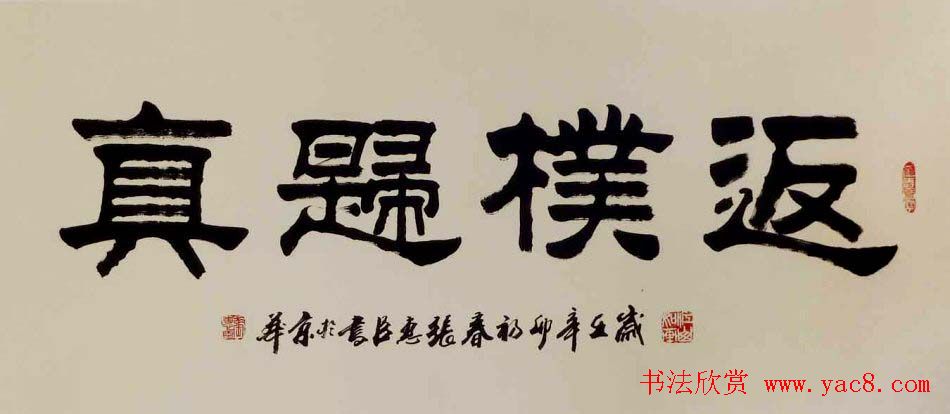 返樸歸真
歲在辛卯初春張惠臣書於京華
书法欣赏 www.yac8.com